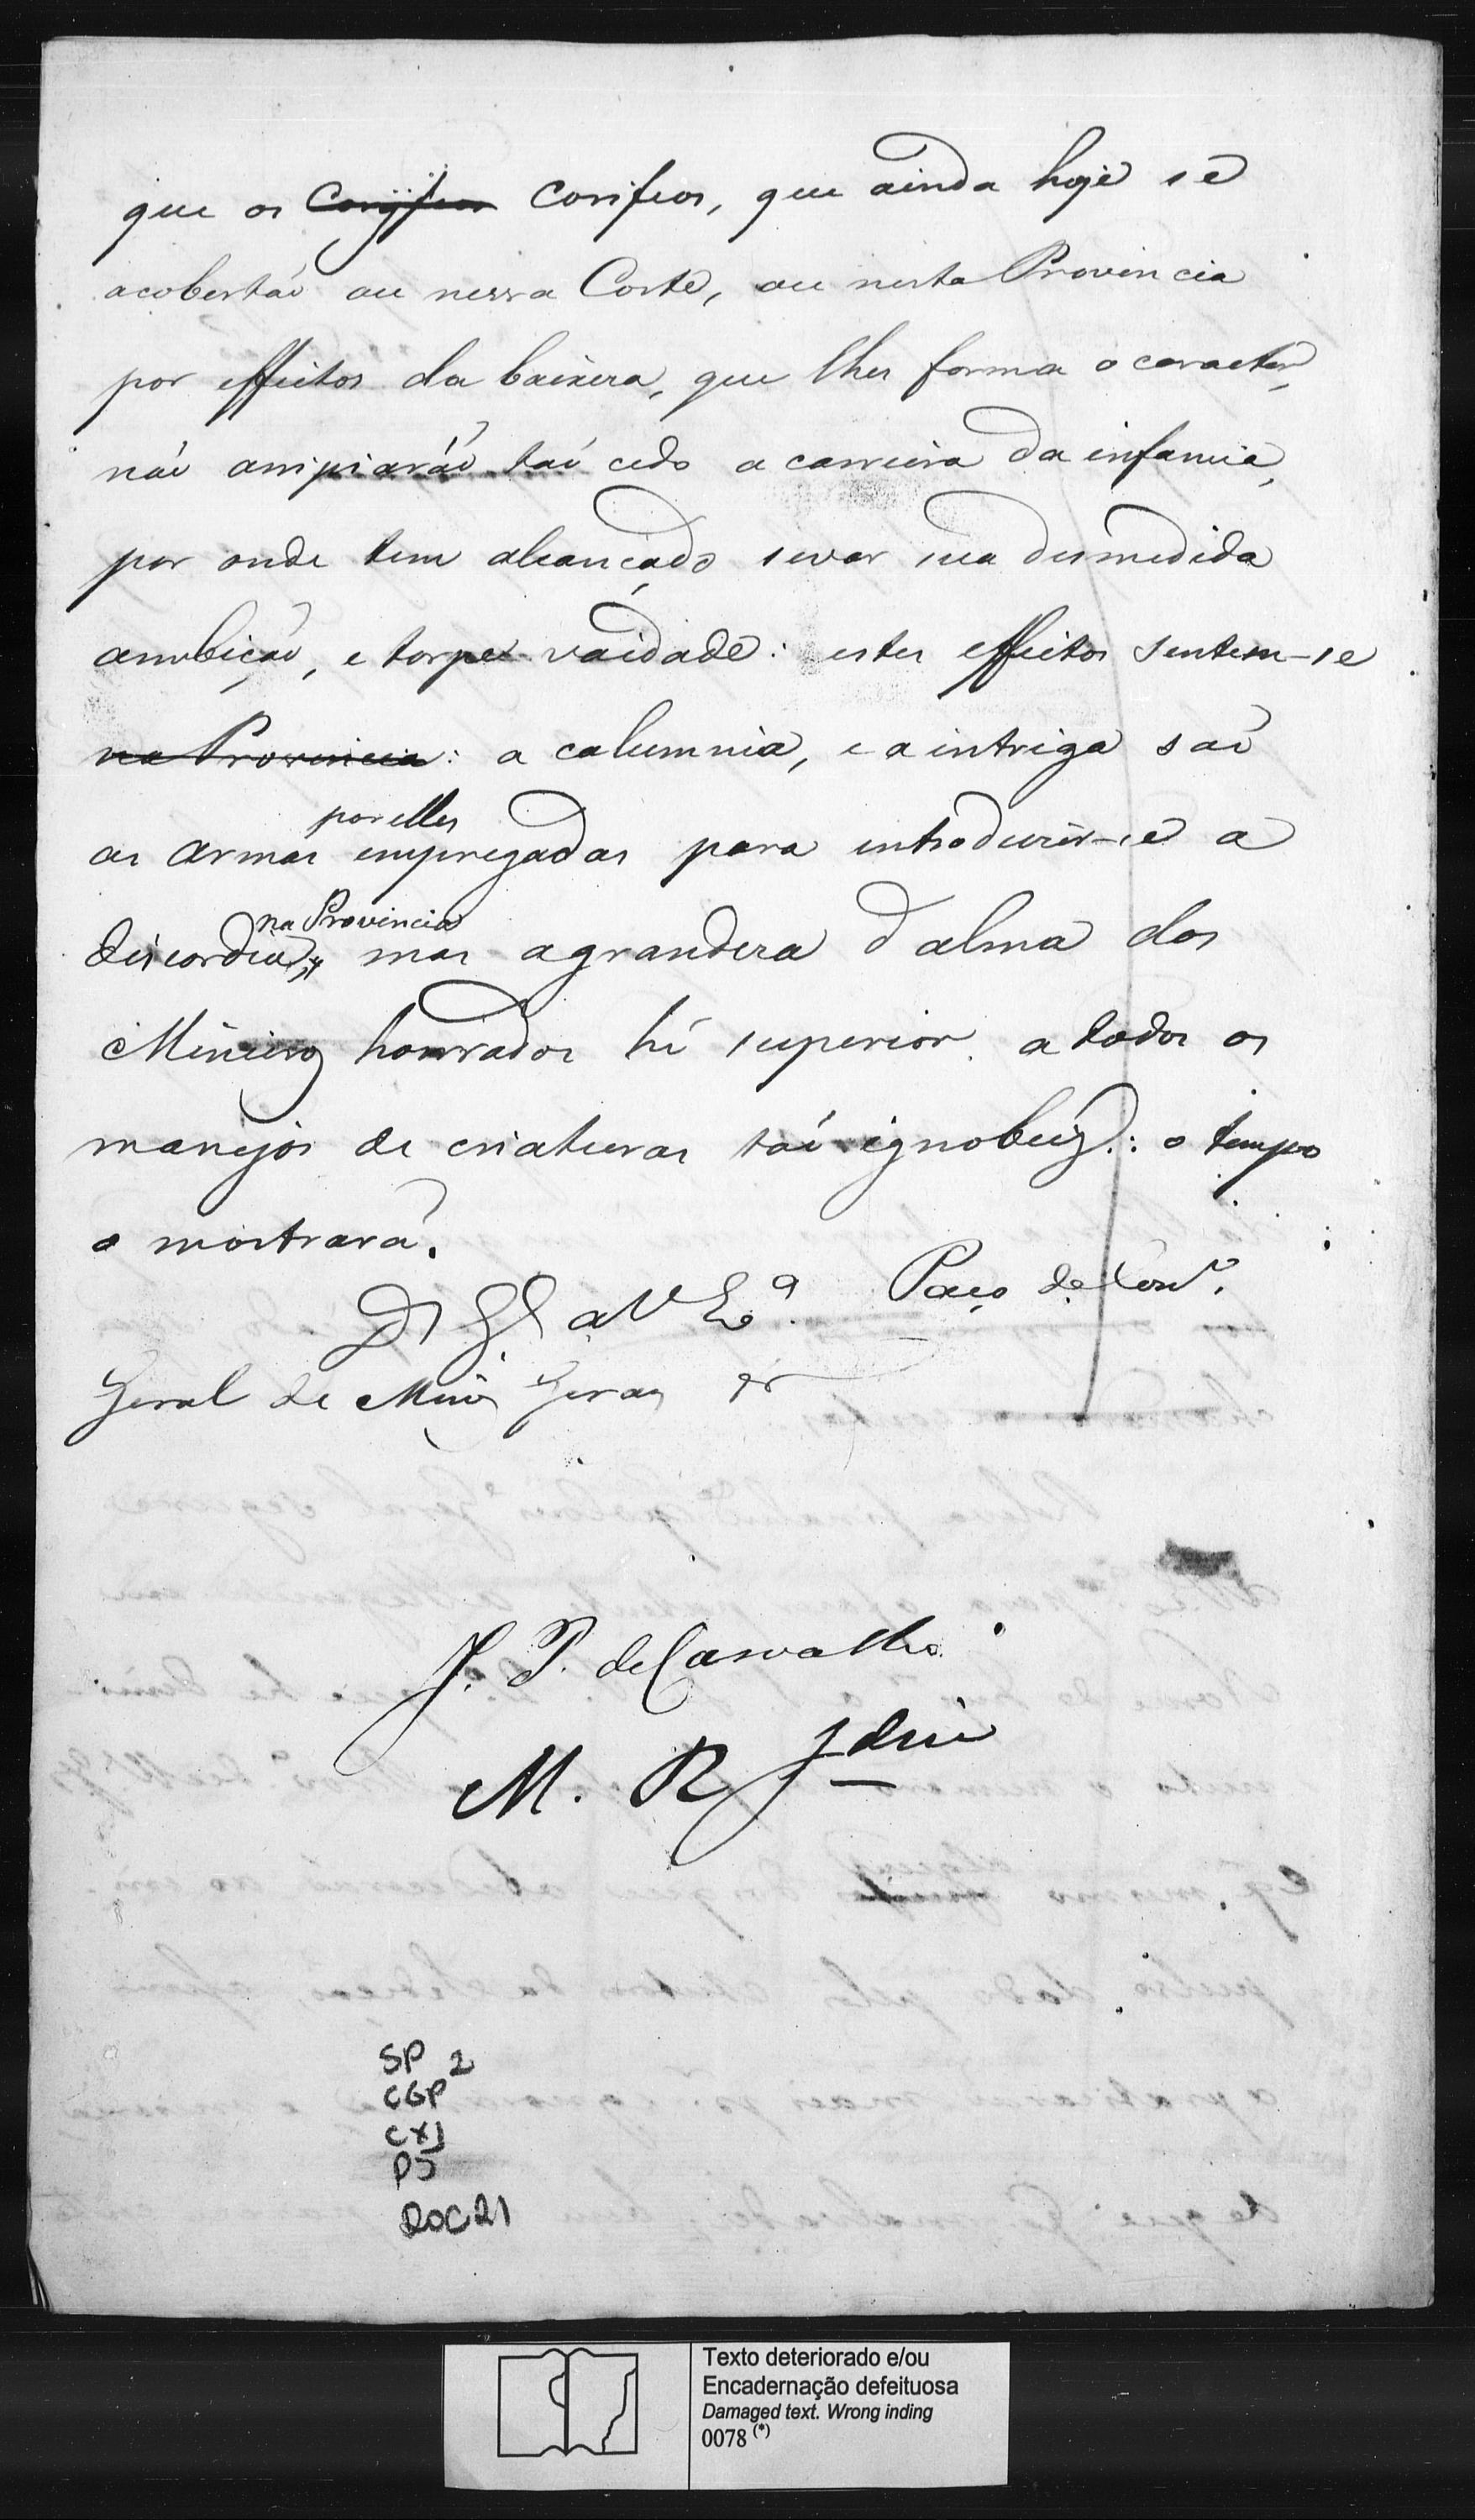 que os Coryfeos Corifeos, que ainda hoje se
acobertão ou nessa Corte, ou nesta Provincia
por effeitos da baixeza, que lhes forma o caracter,
não arripiaráõ taõ cedo a carreira da infamia,
por onde tem alcançado sevar sua desmedida
ambição, e torpe vaidade: estes effeitos sentem-se
na Provincia: a calumnia, e a intriga saõ
por elles
as armas empregadas para introduzir-se a
na Provincia
discordia; mas a grandeza d'alma dos
Mineiros honrados hé superior a todos os
manejos de criaturas taõ ignobeis: o tempo
o mostrará.
D. G. a V. Ex.ª Paço do Cons.º
Geral de Minas Geraes
J. P. de Carvalho
M. R. Jdim
SP 2
CGP
CX1
PJ
DOC21
Texto deteriorado e/ou
Encadernação defeituosa
Damaged text. Wrong inding
0078 (*)